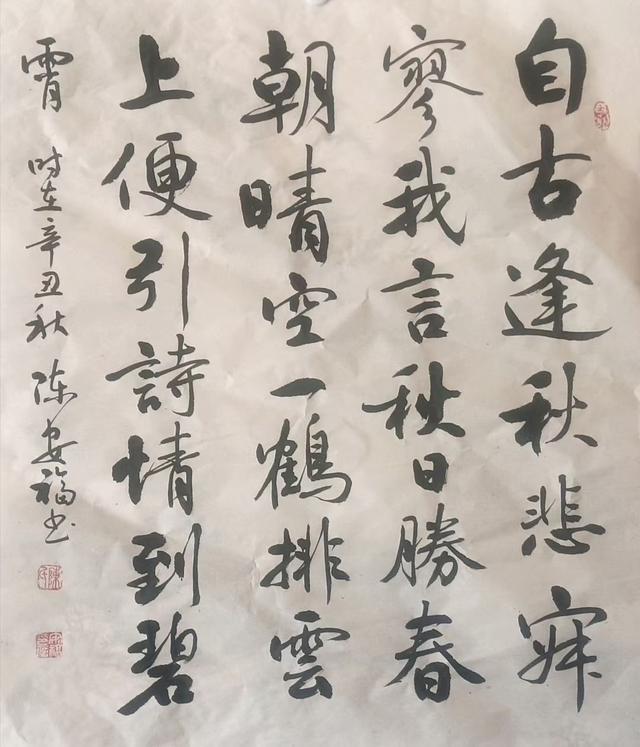 自古逢秋悲寂
寥我言秋日勝春
朝晴空一鶴排雲
上便引詩情到碧
霄 时在辛丑秋 陈安福书